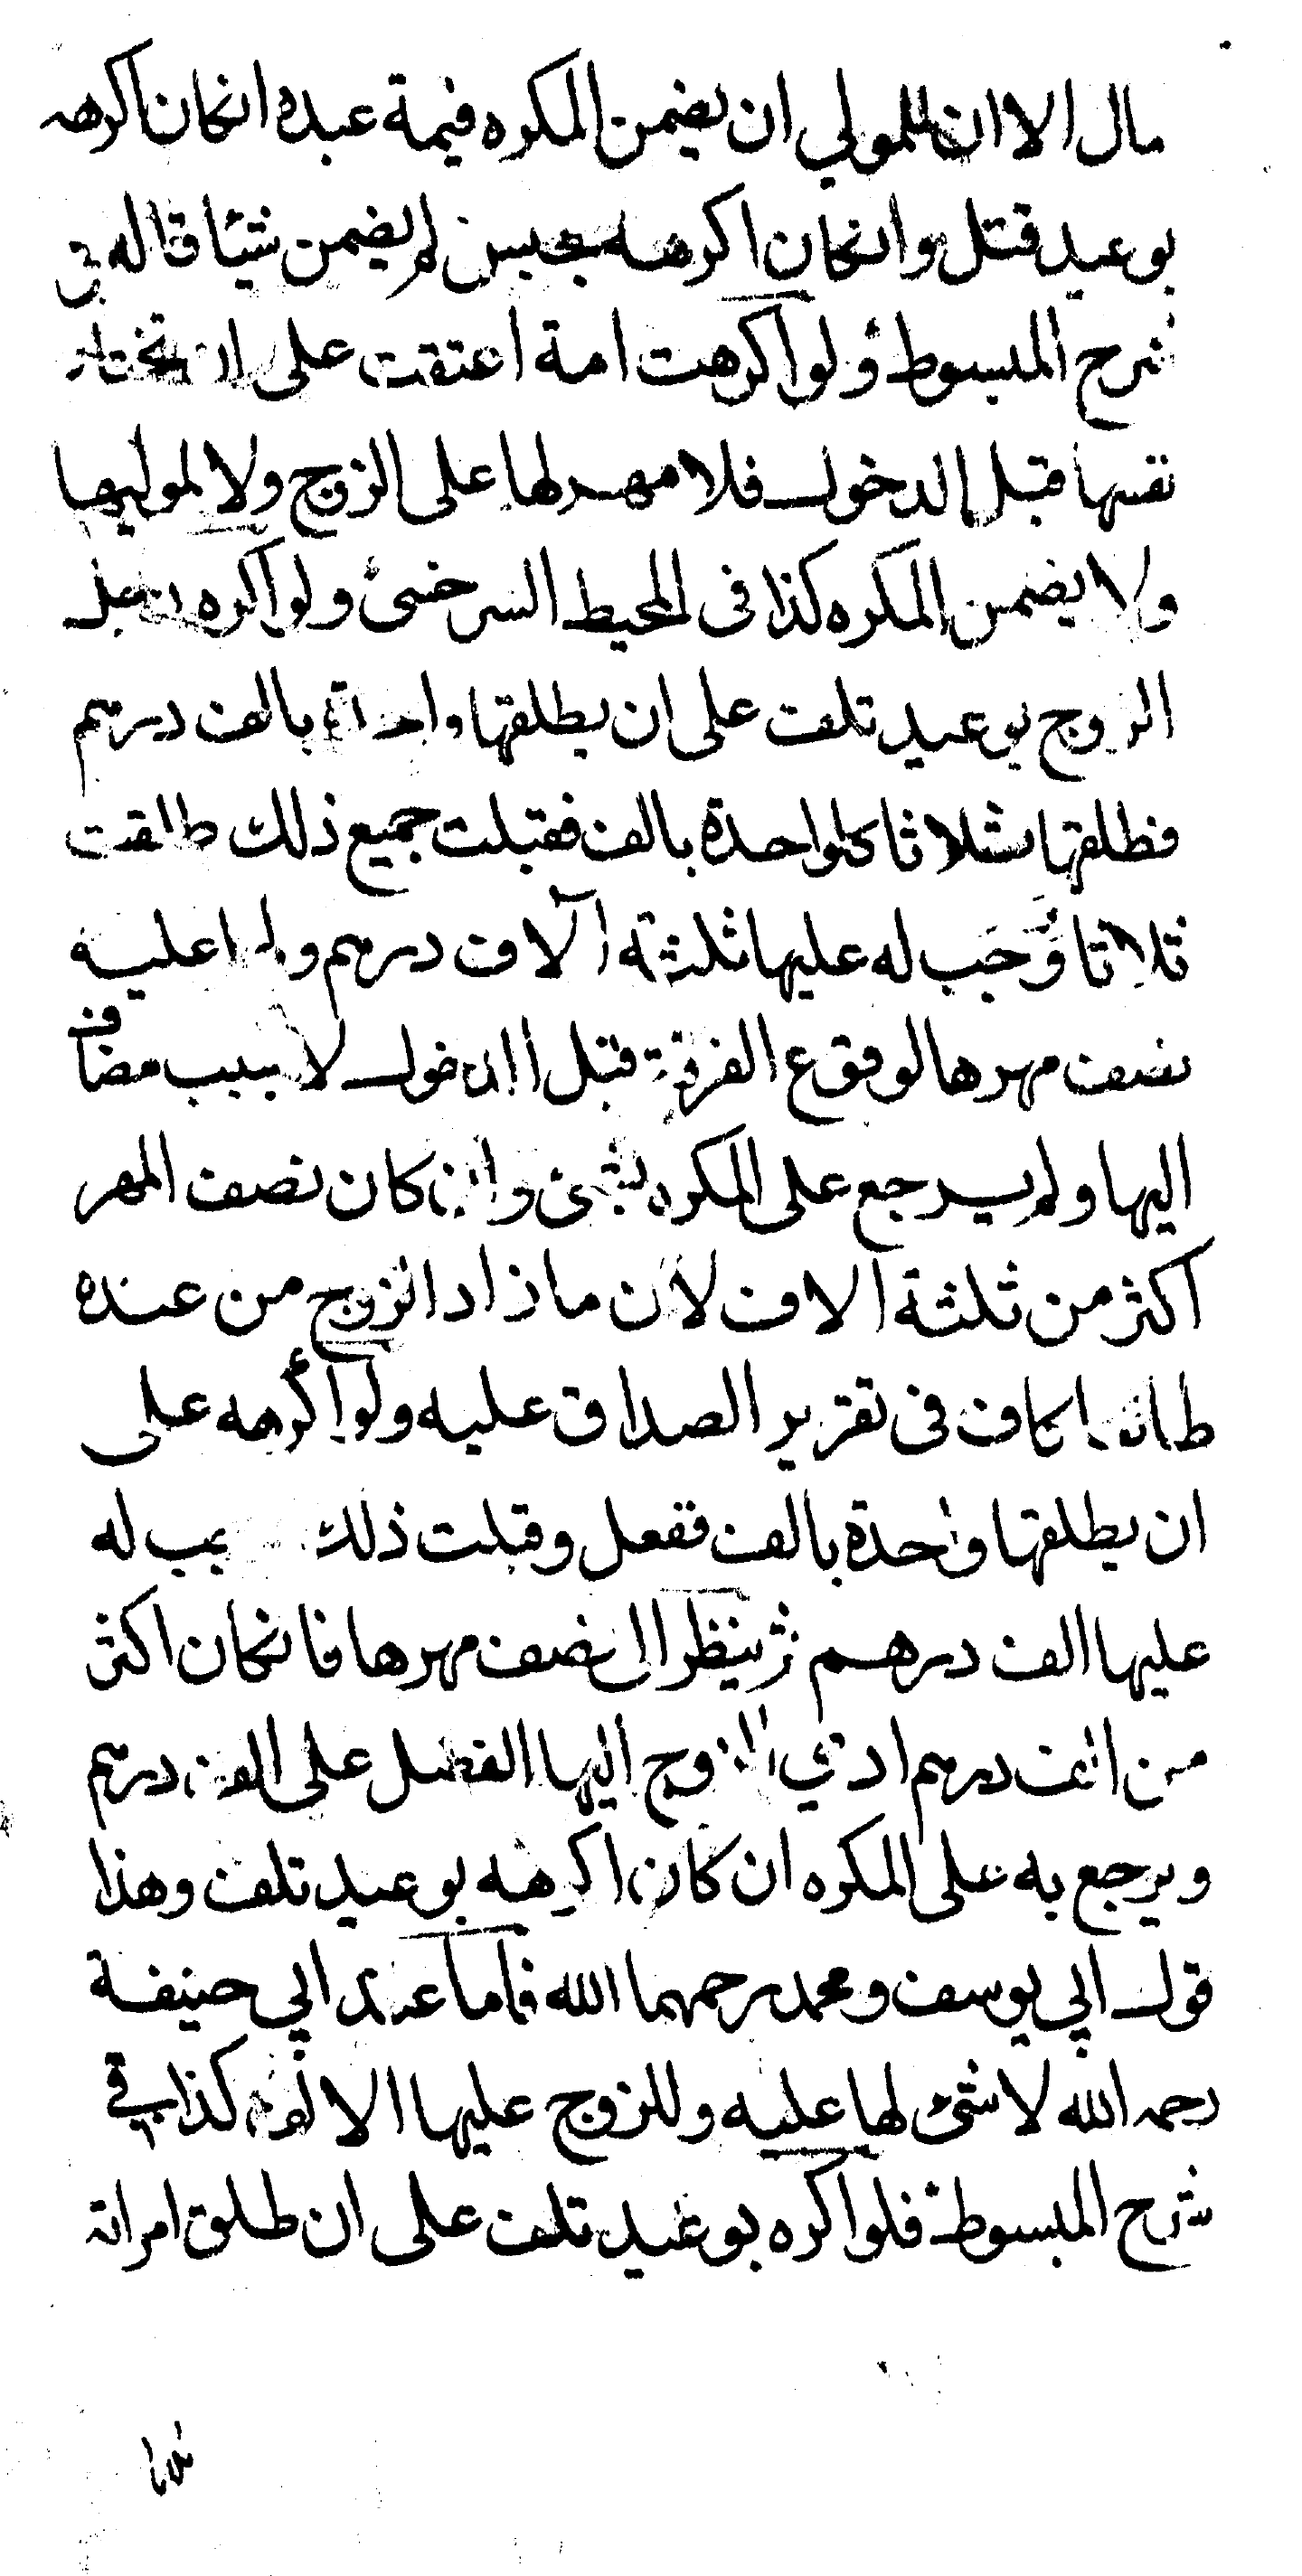 مال الا ان للمولي ان يضمن المكره قيمة عبده انكان اكرهه
بوعيد قتل وانكان اكرهه بحبس لم يضمن شيئا قاله في
شرح المبسوط ولو اكرهت امة اعتقت على ان تختار
نفسها قبل الدخول فلا مهر لها على الزوج ولا لموليها
ولا يضمن المكره كذا فى المحيط السرخسى ولو اكره رجل
الزوج بوعيد تلف على ان يطلقها واحدة بالف درهم
فطلقها ثلاثا كلواحدة بالف فقبلت جميع ذلك طلقت
ثلاثا وَجَب له عليها ثلثة آلاف درهم ولها عليه
نصف مهرها لوقوع الفرقة قبل الدخول لا بسبب مضاف
اليها ولم يرجع على المكره بشئ وان كان نصف المهر
اكثر من ثلثة الاف لان ما زاد الزوج من عنده
كاف فى تقرير الصداق عليه ولو اكرهه على
ان يطلقها واحدة بالف ففعل وقبلت ذلك يجب له
عليها الف درهم ثم ينظر الى نصف مهرها فانكان اكثر
من الف درهم ادي الزوج اليها الفضل على الف درهم
ويرجع به على المكره ان كان اكرهه بوعيد تلف وهذا
قول ابي يوسف ومحمد رحمهما الله فاما عند ابي حنيفة
رحمه الله لا شئ لها عليه وللزوج عليها الالف كذا في
شرح المبسوط فلو اكره بوعيد تلف على ان طلق امراته
ثلاثا